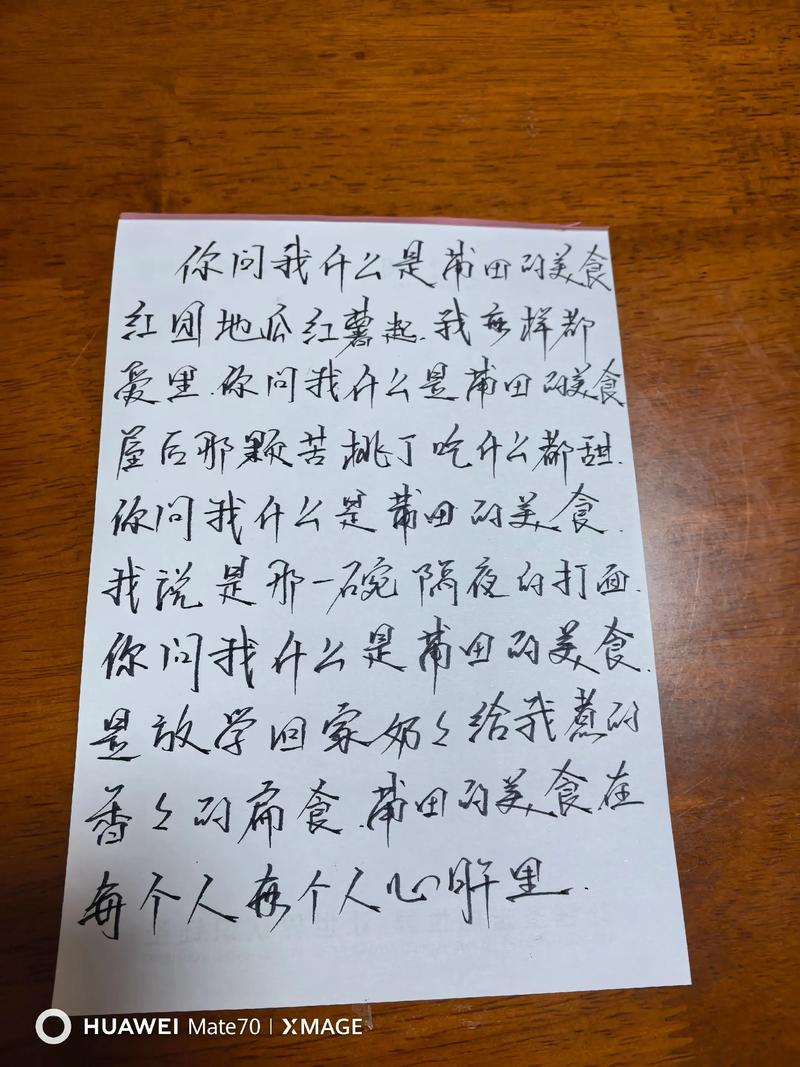 你问我什么是莆田的美食
红团地瓜红薯起.我每样都
爱里.你问我什么是莆田的美食
屋后那颗苦桃丁吃什么都甜.
你问我什么是莆田的美食.
我说是那一碗隔夜的打面.
你问我什么是莆田的美食.
是放学回家奶々给我煮的
香々的扁食.莆田的美食在
每个人每个人心肝里.
HUAWEI Mate70 | XMAGE